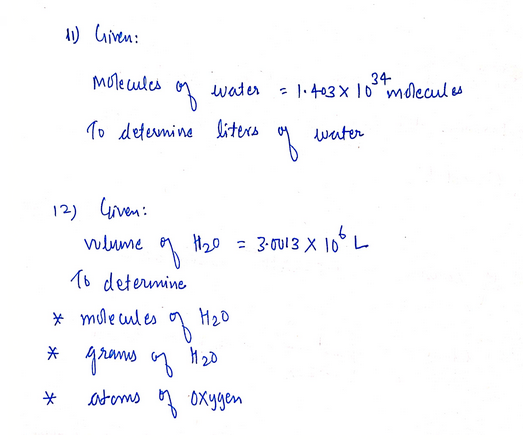 11) Given:
Molecules of water = 1.403 X 10^34 molecules
To determine liters of water
12) Given:
volume of H2O = 3.0013 X 10^6 L
To determine
* molecules of H2O
* grams of H2O
* atoms of oxygen